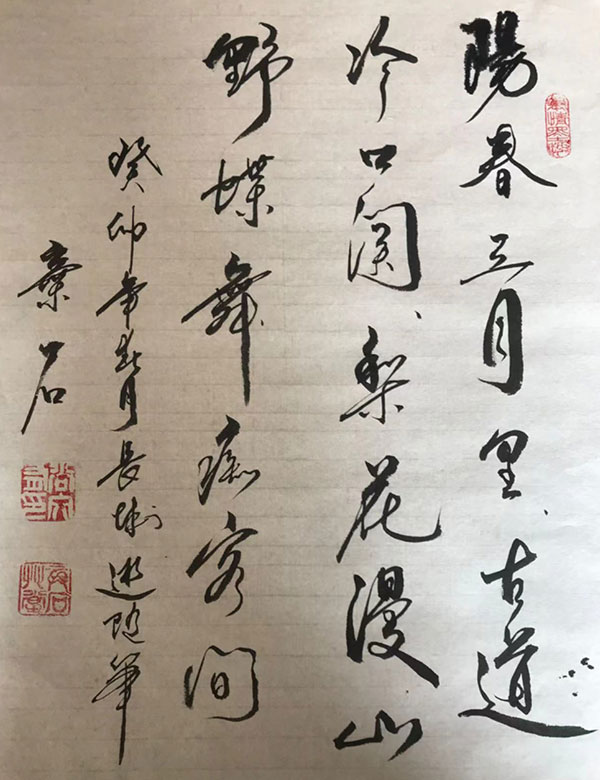 陽春三月里、古道
冷口関、梨花漫山
野蝶舞痴客间
癸卯年春月長城遊随筆
石